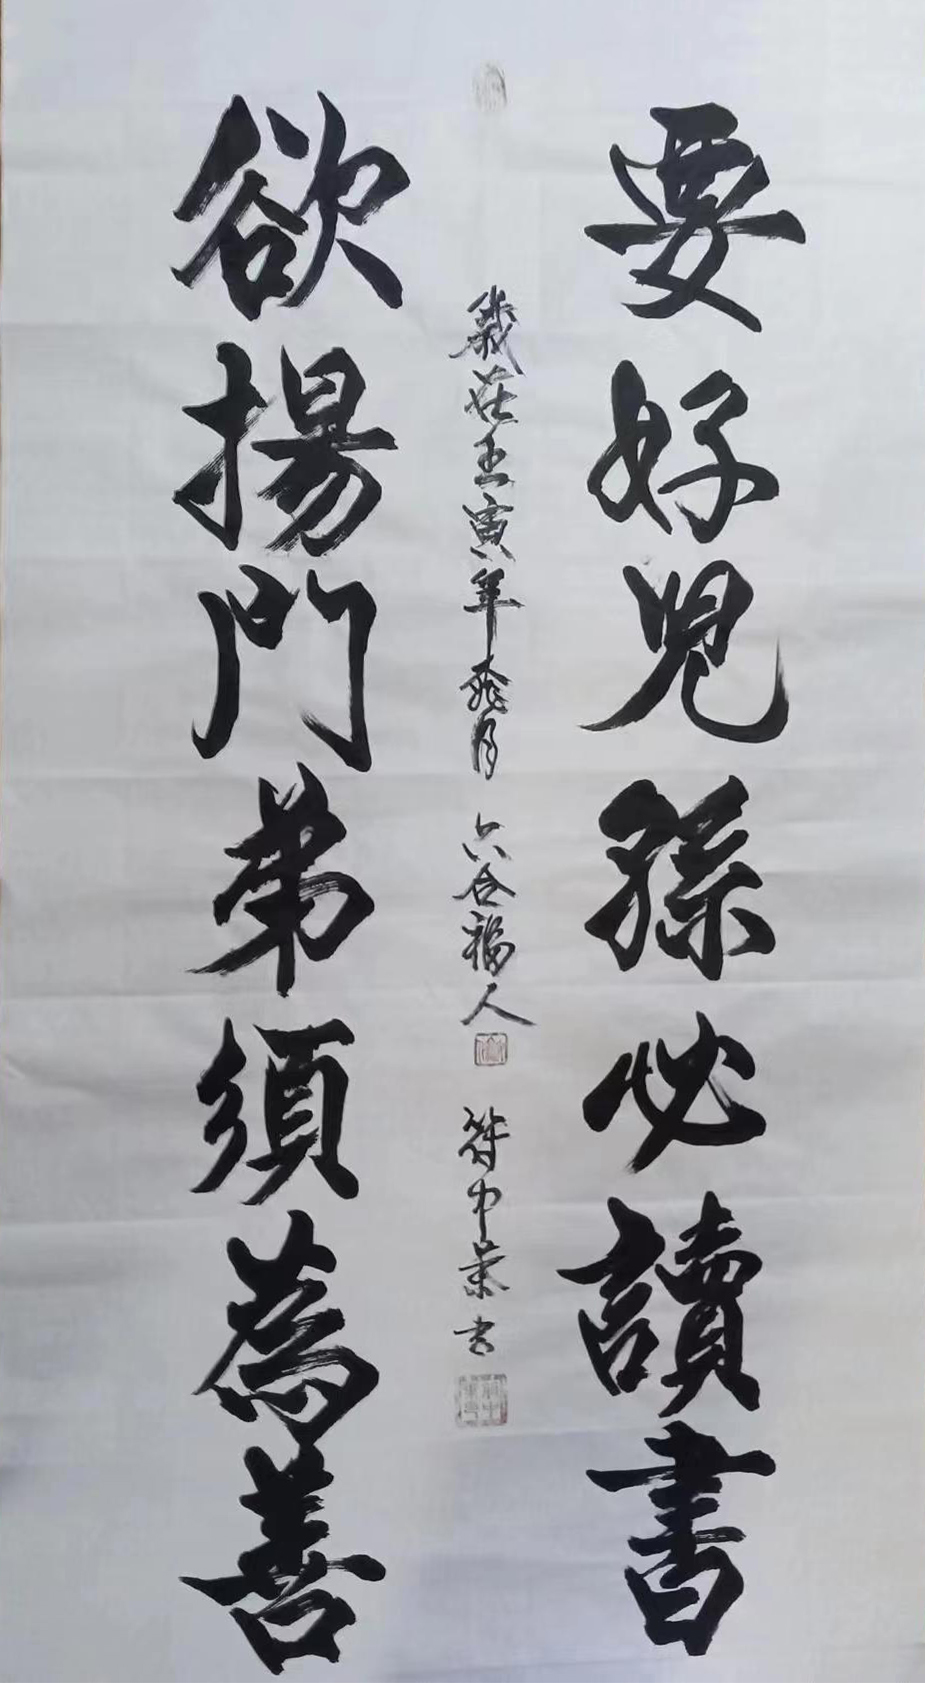 要好兒孫必讀書
欲揚門第須為善
歲在壬寅年 月 六合福人
符中 書